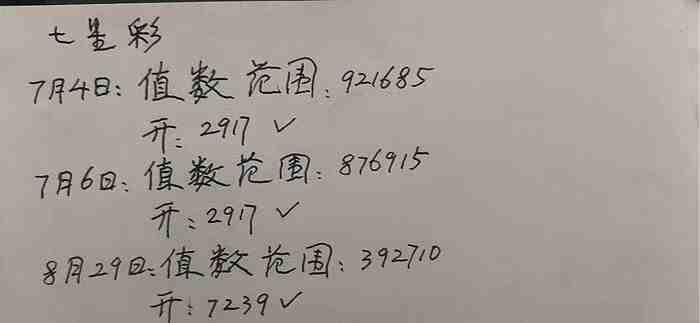 七星彩
7月4日:值数范围:921685
开:2917 ✓
7月6日:值数范围:876915
开:2917 ✓
8月29日:值数范围:392710
开:7239 ✓